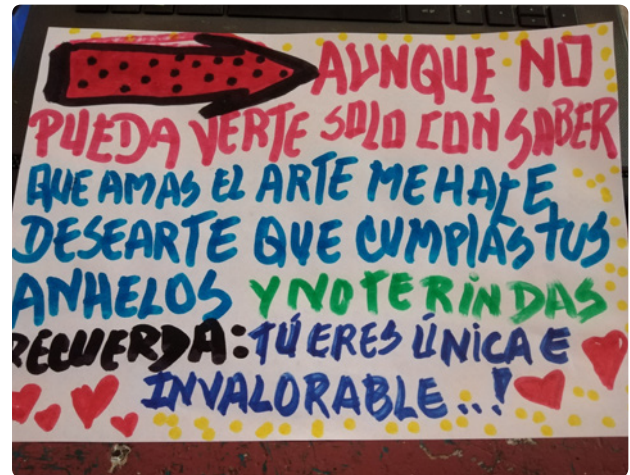 AUNQUE NO
PUEDA VERTE SOLO CON SABER
QUE AMAS EL ARTE ME HACE
DESEARTE QUE CUMPLAS TUS
ANHELOS Y NO TE RINDAS
RECUERDA: TÚ ERES ÚNICA E
INVALORABLE...!